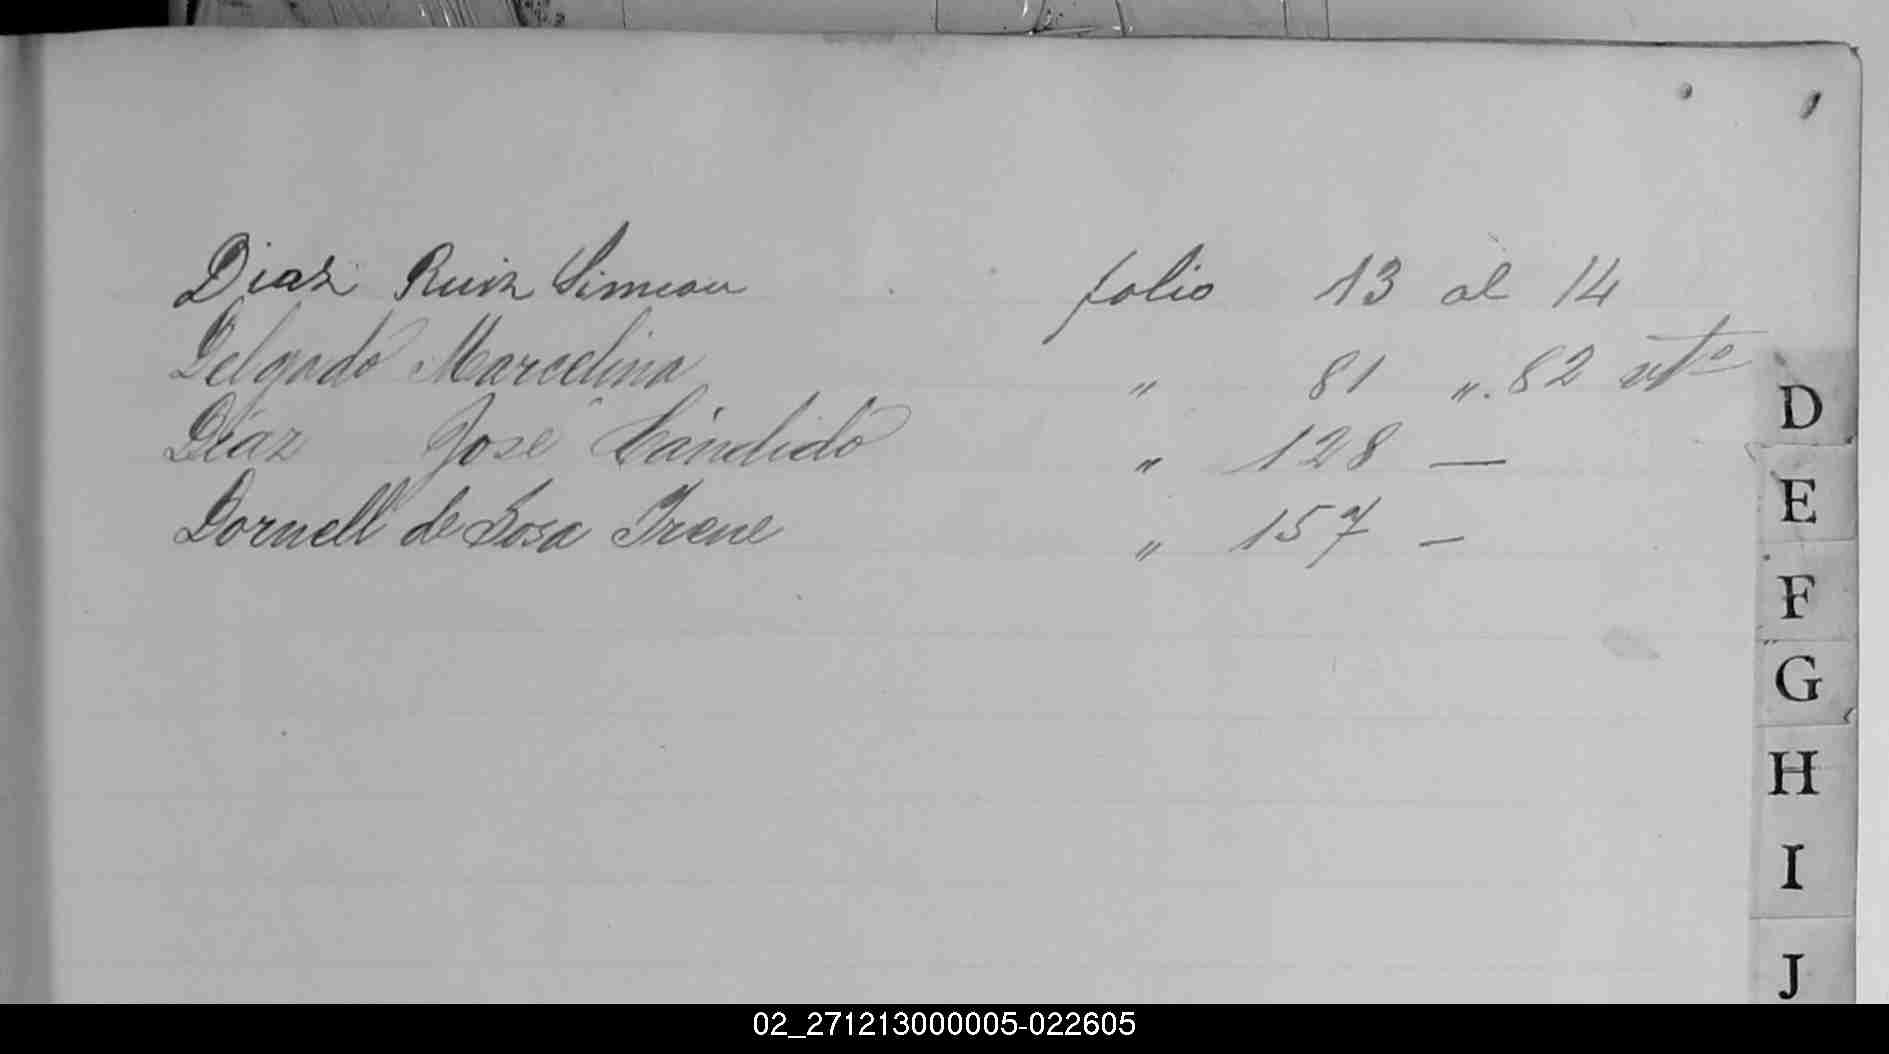 Diaz Ruiz Simeon folio 13 al 14
Delgado Marcelina " 81 ". 82 vto
Díaz José Cándido " 128 —
Dornell de Sosa Irene " 157 —
D
E
F
G
H
I
J
02_271213000005-022605